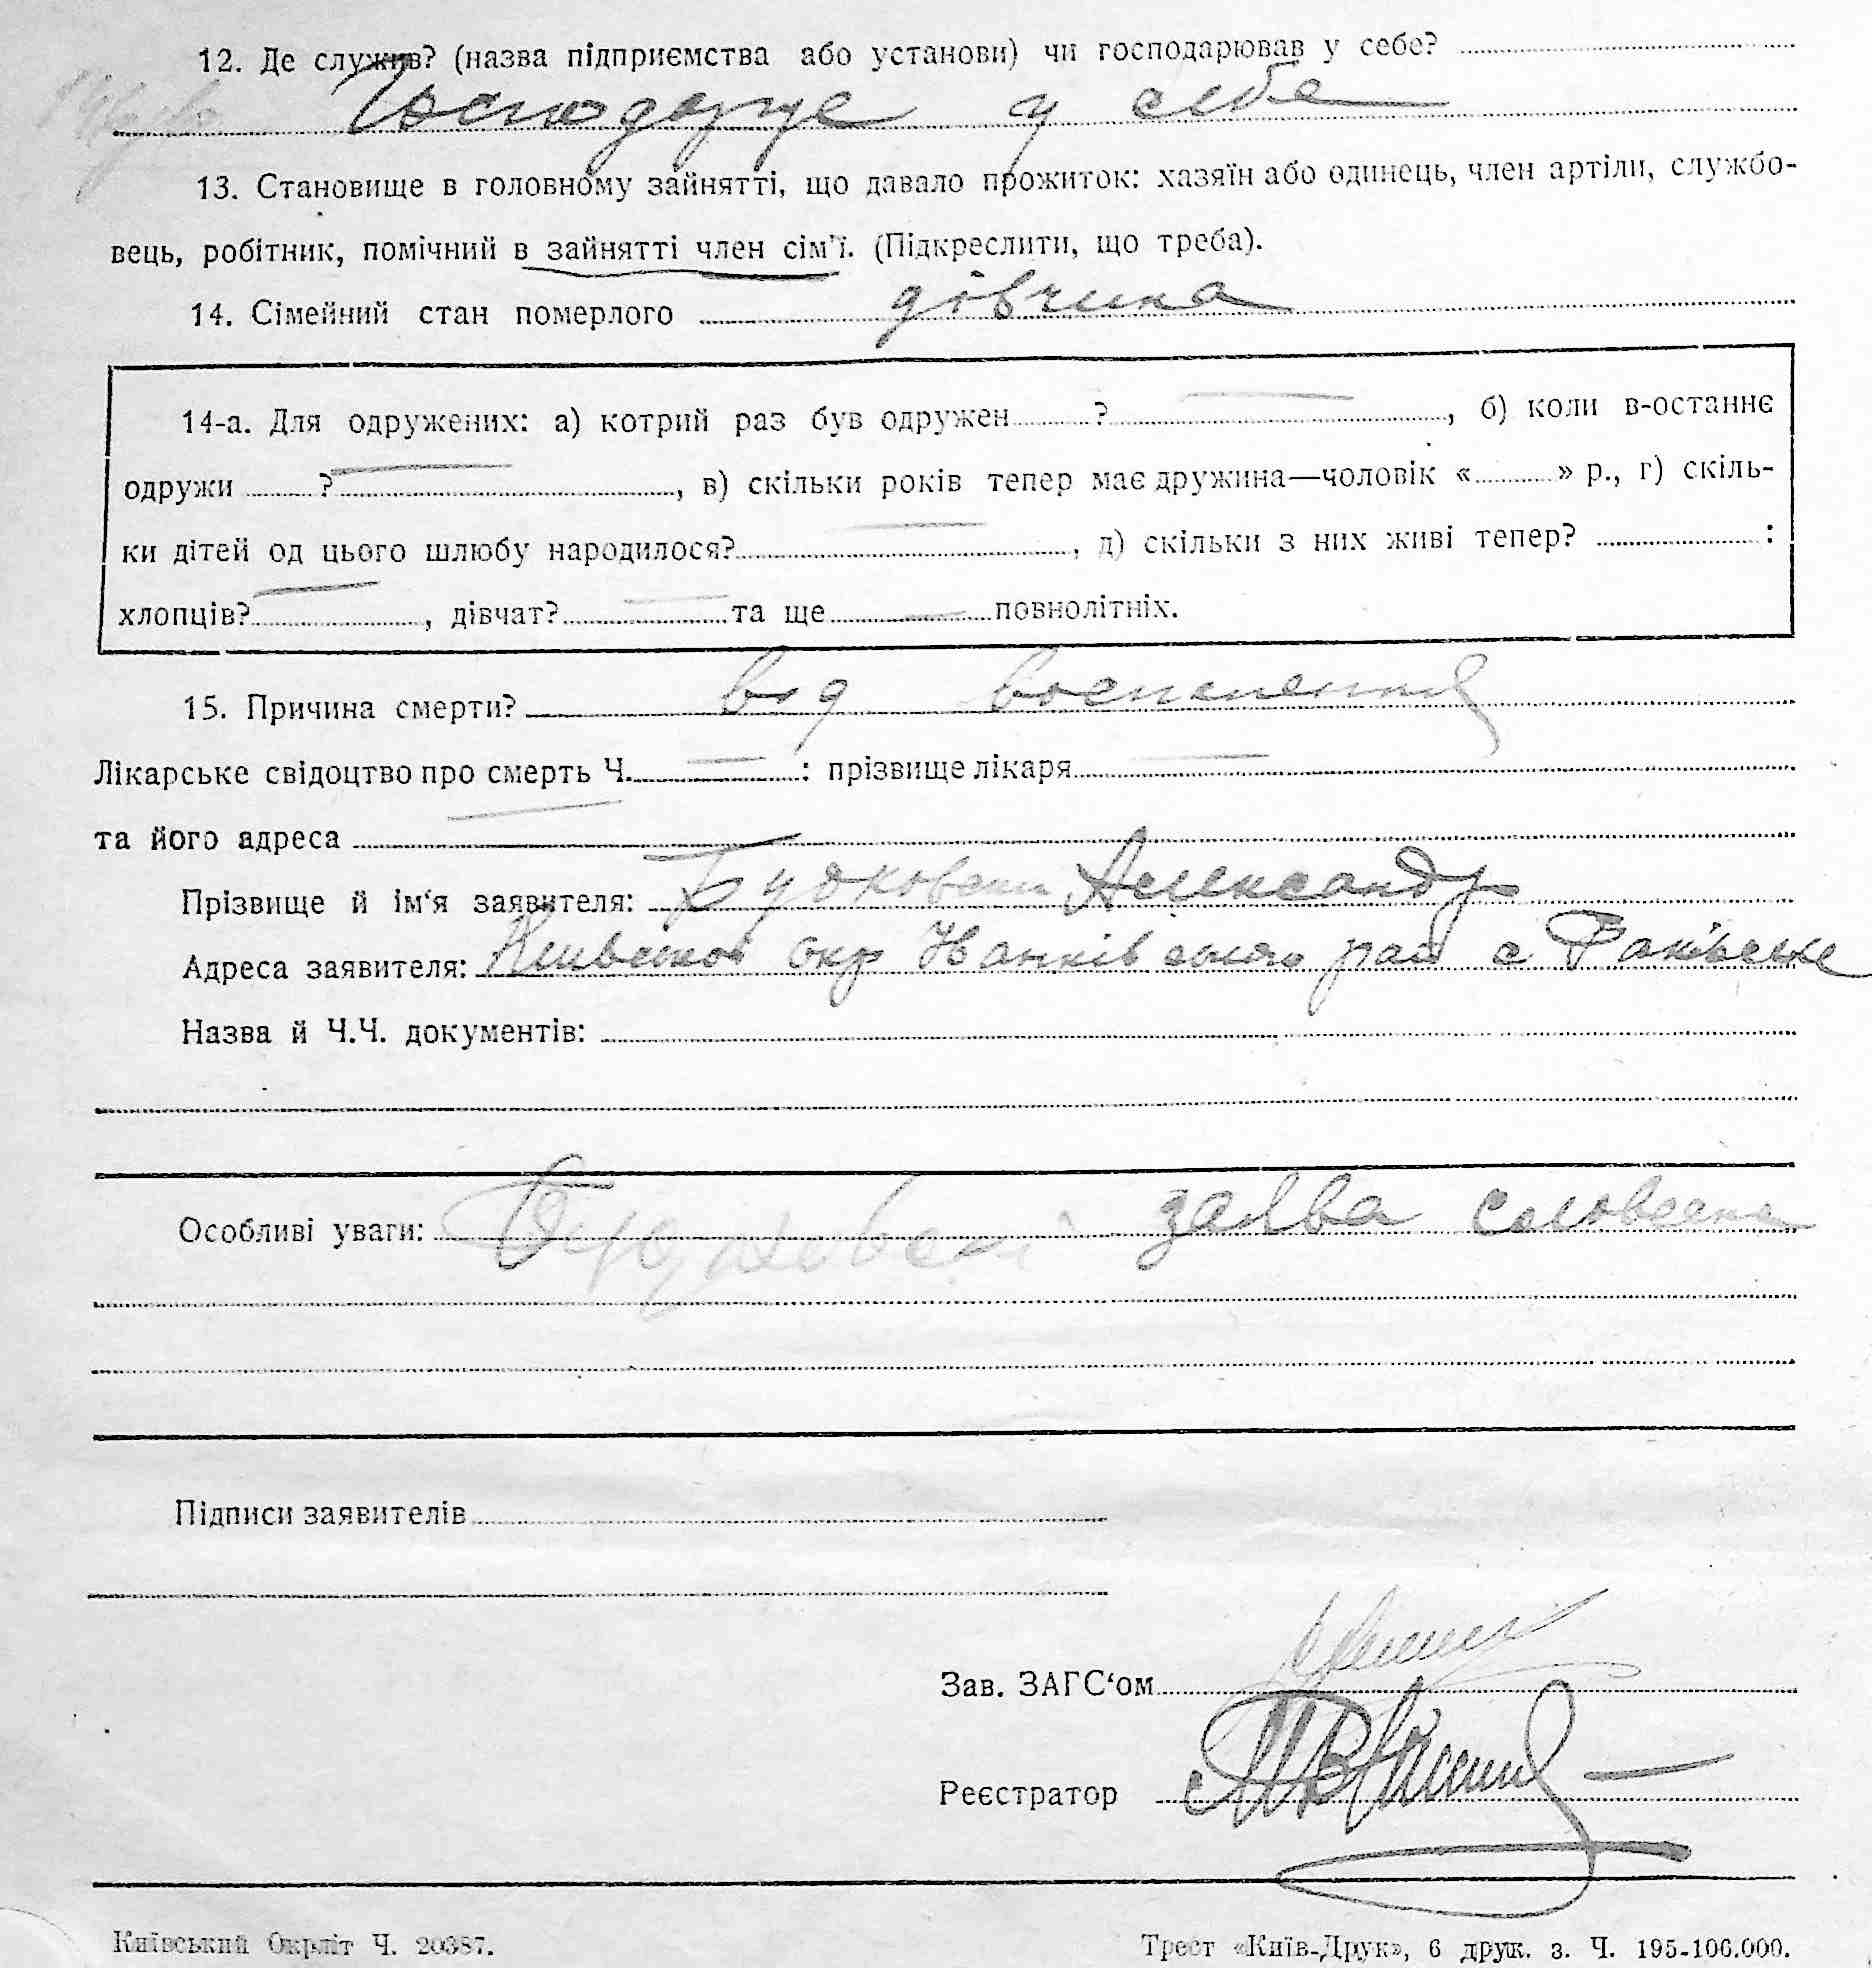 12. Де служив? (назва підприємства або установи) чи господарював у себе?
Господарує у себе
13. Становище в головному зайнятті, що давало прожиток: хазяїн або одинець, член артіли, службо-
вець, робітник, помічний в зайнятті член сім'ї. (Підкреслити, що треба).
14. Сімейний стан померлого дівчина
14-а. Для одружених: а) котрий раз був одружен ? , б) коли в-останнє
одружи ? , в) скільки років тепер має дружина—чоловік « » р., г) скіль-
ки дітей од цього шлюбу народилося? , д) скільки з них живі тепер? :
хлопців? , дівчат? та ще повнолітніх.
15. Причина смерти? від воспаления
Лікарське свідоцтво про смерть Ч. : прізвище лікаря
та його адреса
Прізвище й ім'я заявителя: Александр
Адреса заявителя: Київської окр рай с
Назва й Ч.Ч. документів:
Особливі уваги: заява словесна
Підписи заявителів
Зав. ЗАГС'ом
Реєстратор
Київський Окрліт Ч. 20387.
Трест «Київ-Друк», 6 друк. з. Ч. 195-100.000.